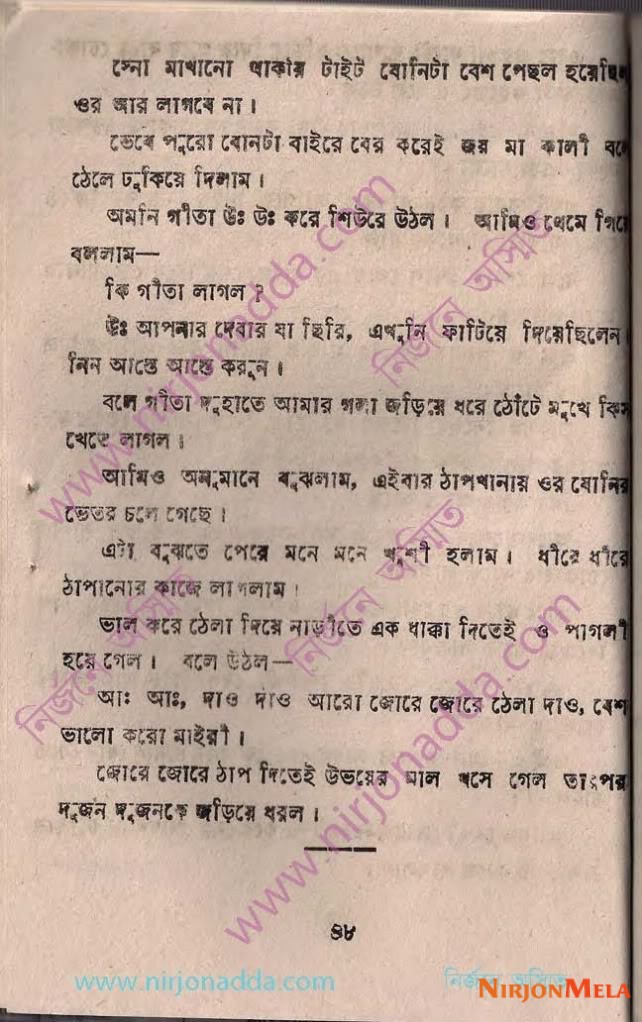 স্নো মাখানো থাকায় টাইট যোনিটা বেশ পেছল হয়েছিল
ওর আর লাগবে না।
ভেবে পুরো ধোনটা বাইরে বের করেই জয় মা কালী বলে
ঠেলে ঢুকিয়ে দিলাম।
অমনি গীতা উঃ উঃ করে শিউরে উঠল। আমিও থেমে গিয়ে
বললাম—
কি গীতা লাগল?
উঃ আপনার দেবার যা ছিরি, এখুনি ফাটিয়ে দিয়েছিলেন।
নিন আস্তে আস্তে করুন।
বলে গীতা দুহাতে আমার গলা জড়িয়ে ধরে ঠোঁটে মুখে কিস
খেতে লাগল।
আমিও অনুমানে বুঝলাম, এইবার ঠাপখানায় ওর যোনির
ভেতর চলে গেছে।
এটা বুঝতে পেরে মনে মনে খুশী হলাম। ধীরে ধীরে
ঠাপানোর কাজে লাগলাম।
ভাল করে ঠেলা দিয়ে নাড়ীতে এক ধাক্কা দিতেই ও পাগলী
হয়ে গেল। বলে উঠল—
আঃ আঃ, দাও দাও আরো জোরে জোরে ঠেলা দাও, বেশ
ভালো করো মাইরী।
জোরে জোরে ঠাপ দিতেই উভয়ের মাল খসে গেল তাৎপর
দুজন দুজনকে জড়িয়ে ধরল।
৪৮
www.nirjonadda.com
নির্জনে অস্মিত
www.nirjonadda.com
নির্জনে অস্মিত
নির্জনে অস্মিত
www.nirjonadda.com
নির্জনে অস্মিত
NIRJONMELA